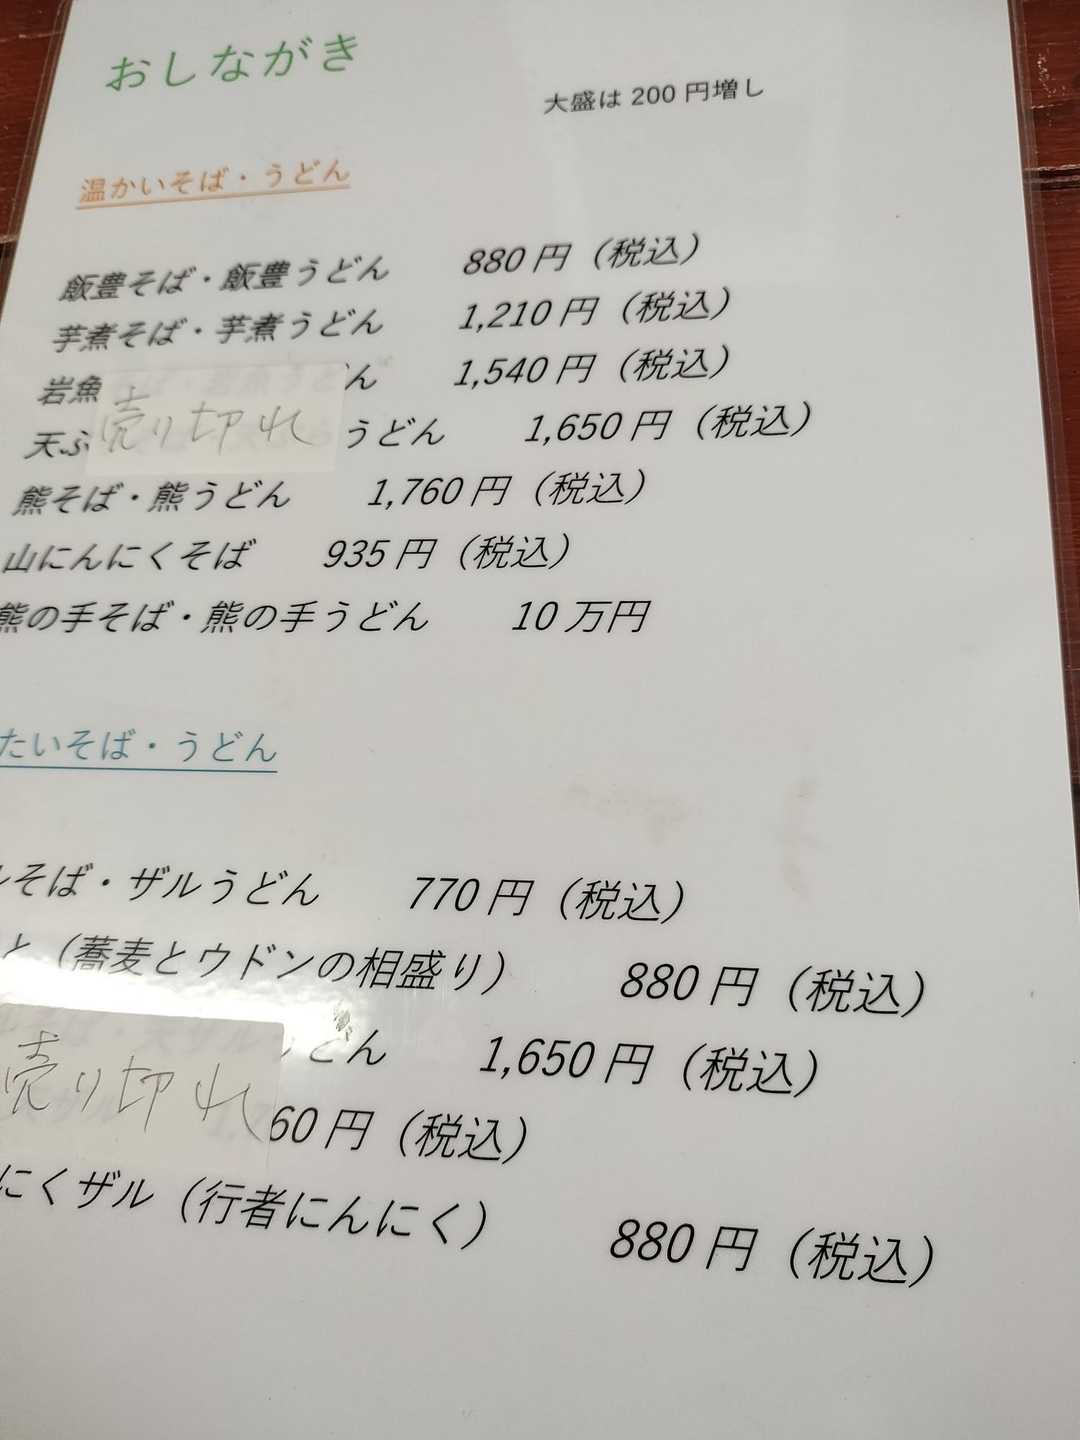 おしながき
大盛は 200 円増し
温かいそば・うどん
飯豊そば・飯豊うどん 880 円（税込）
芋煮そば・芋煮うどん 1,210 円（税込）
岩魚 ん 1,540 円（税込）
天ぷ 売り切れ うどん 1,650 円（税込）
熊そば・熊うどん 1,760 円（税込）
山にんにくそば 935 円（税込）
熊の手そば・熊の手うどん 10 万円
たいそば・うどん
ルそば・ザルうどん 770 円（税込）
と（蕎麦とウドンの相盛り） 880 円（税込）
うどん 1,650 円（税込）
売り切れ 60 円（税込）
にくザル（行者にんにく） 880 円（税込）